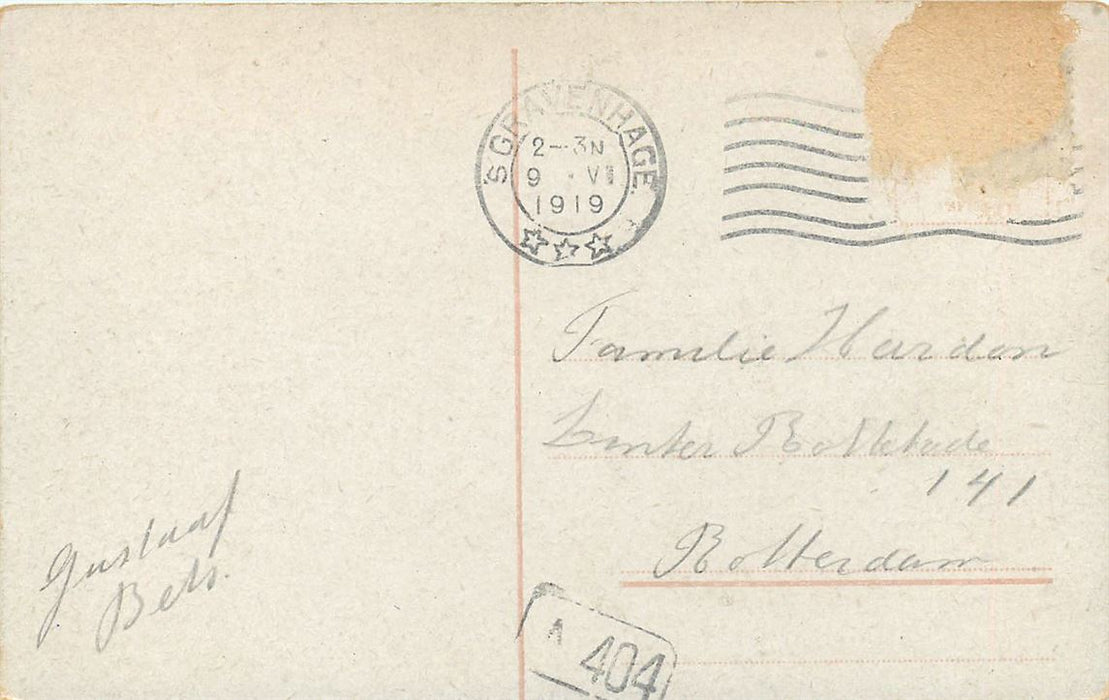 'S GRAVENHAGE
2-3N
9 VI
1919
Familie Hardon
Linker Rottekade
141
Rotterdam
Gustaaf
Bets.
A 404